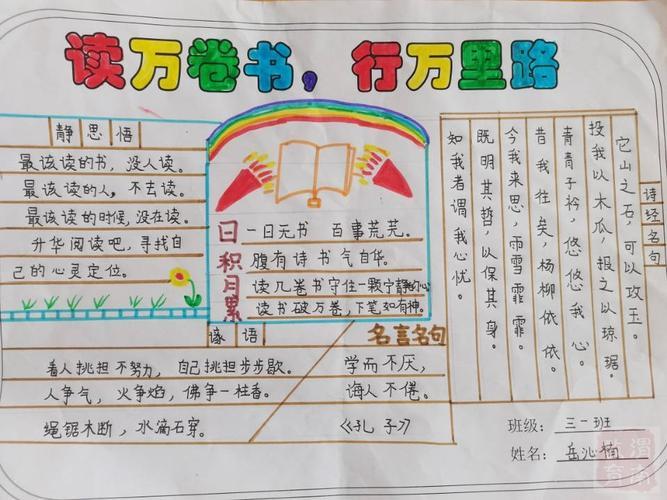 读万卷书，行万里路
静思悟
最该读的书，没人读。
最该读的人，不去读。
最该读的时候，没在读。
升华阅读吧，寻找自
己的心灵定位。
日积月累
一日无书 百事荒芜。
腹有诗书气自华。
读几卷书守住一颗宁静的心
读书破万卷，下笔如有神。
诗经名句
它山之石，可以攻玉。
投我以木瓜，报之以琼琚。
青青子衿，悠悠我心。
昔我往矣，杨柳依依。
今我来思，雨雪霏霏。
既明其哲，以保其身。
知我者谓我心忧。
谚语
看人挑担不努力，自己挑担步步歇。
人争气，火争焰，佛争一柱香。
绳锯木断，水滴石穿。
名言名句
学而不厌，
诲人不倦。
《孔子》
班级：三一班
姓名：岳沁楠
渭南
教育